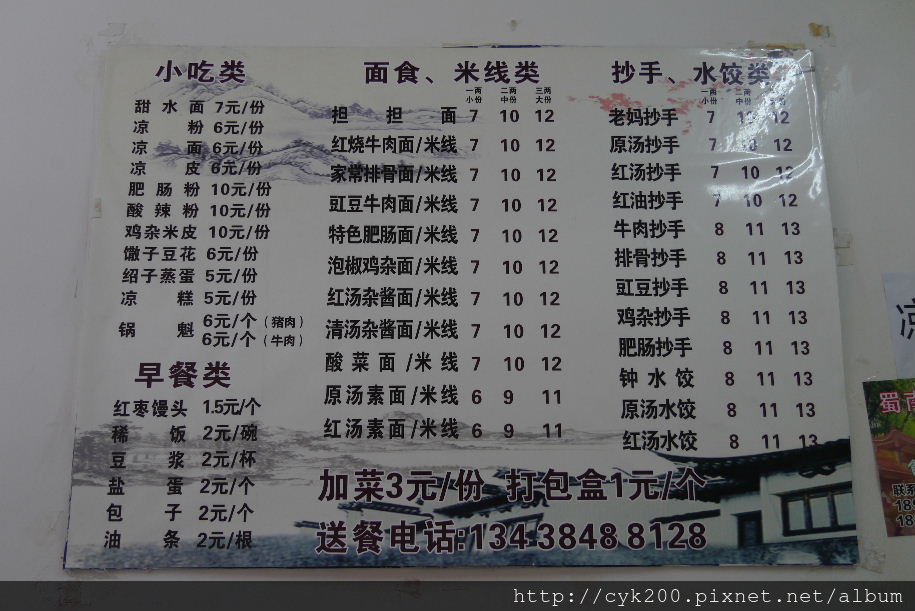 小吃类
甜水面 7元/份
凉粉 6元/份
凉面 6元/份
凉皮 6元/份
肥肠粉 10元/份
酸辣粉 10元/份
鸡杂米皮 10元/份
馓子豆花 6元/份
绍子蒸蛋 5元/份
凉糕 5元/份
锅魁 6元/个（猪肉）
6元/个（牛肉）
早餐类
红枣馒头 1.5元/个
稀饭 2元/碗
豆浆 2元/杯
盐蛋 2元/个
包子 2元/个
油条 2元/根
面食、米线类
一两 二两 三两
小份 中份 大份
担担面 7 10 12
红烧牛肉面/米线 7 10 12
家常排骨面/米线 7 10 12
豇豆牛肉面/米线 7 10 12
特色肥肠面/米线 7 10 12
泡椒鸡杂面/米线 7 10 12
红汤杂酱面/米线 7 10 12
清汤杂酱面/米线 7 10 12
酸菜面/米线 7 10 12
原汤素面/米线 6 9 11
红汤素面/米线 6 9 11
抄手、水饺类
一两 二两
小份 中份
老妈抄手 7 10 12
原汤抄手 7 10 12
红汤抄手 7 10 12
红油抄手 7 10 12
牛肉抄手 8 11 13
排骨抄手 8 11 13
豇豆抄手 8 11 13
鸡杂抄手 8 11 13
肥肠抄手 8 11 13
钟水饺 8 11 13
原汤水饺 8 11 13
红汤水饺 8 11 13
加菜3元/份 打包盒1元/个
送餐电话:134 3848 8128
蜀南
联系
http://cyk200.pixnet.net/album